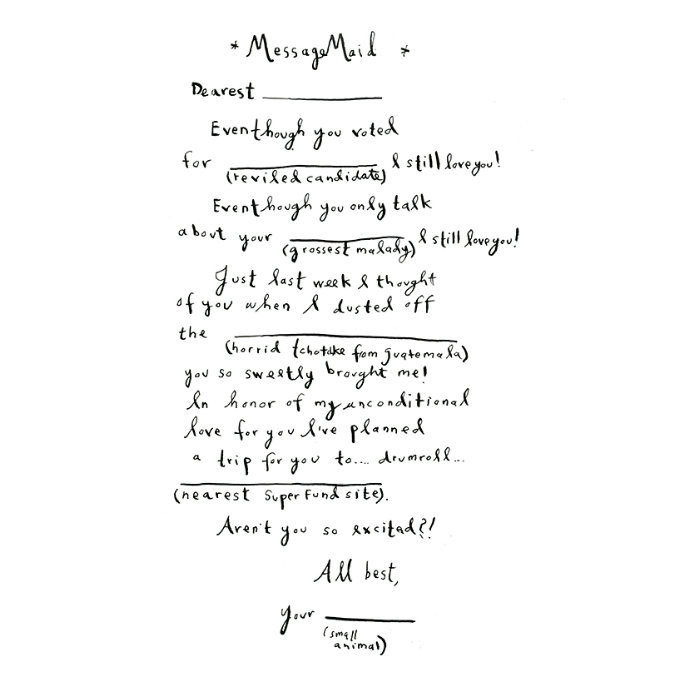 * MessageMaid *
Dearest ___________
Eventhough you voted
for ___________ I still love you!
(reviled candidate)
Eventhough you only talk
about your ___________ I still love you!
(grossest malady)
Just last week I thought
of you when I dusted off
the ___________
(horrid tchotchke from guatemala)
you so sweetly brought me!
In honor of my unconditional
love for you I've planned
a trip for you to.... drumroll...
___________
(nearest Superfund site).
Aren't you so excited?!
All best,
your ___________
(small
animal)